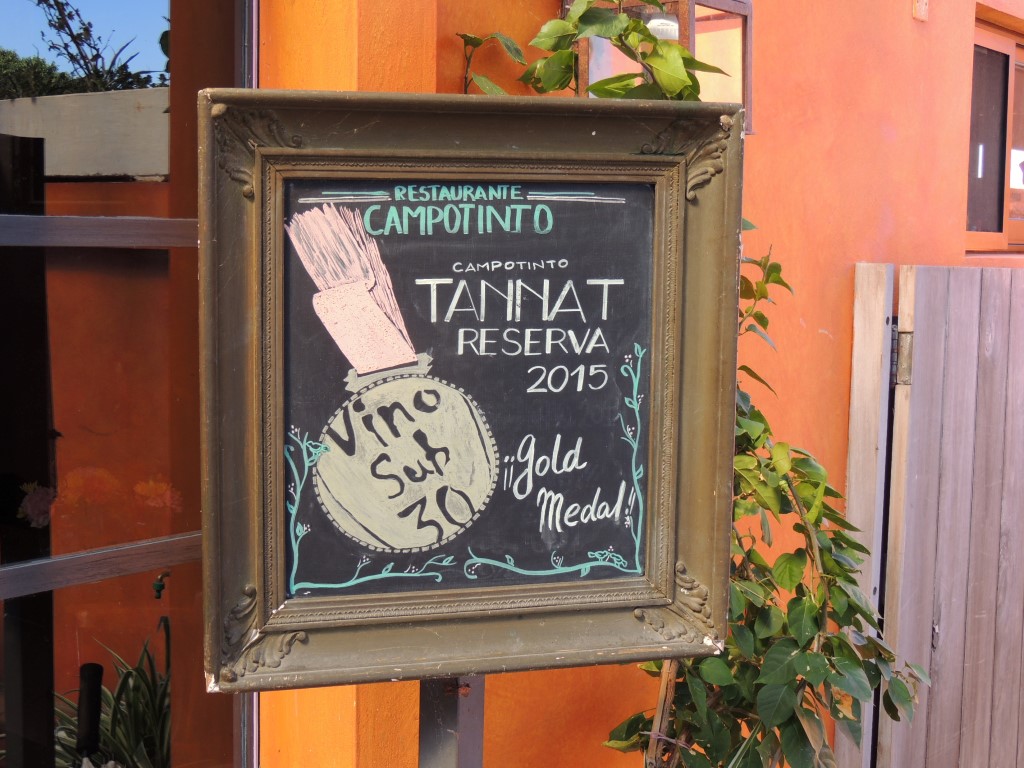 RESTAURANTE
CAMPOTINTO
CAMPOTINTO
TANNAT
RESERVA
2015
Vino
Sub
30
¡¡Gold
Medal!!